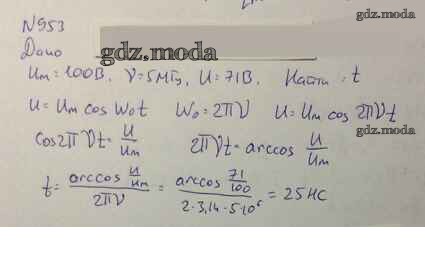 N953
gdz.moda
Дано
gdz.moda
Um=100В, V=5МГц, U=71В. Найти: t
U=Um cos W₀t W₀=2πV U=Um cos 2πVt
gdz.moda
cos2πVt=U/Um 2πVt=arccos U/Um
t= arccos U/Um / 2πV = arccos 71/100 / 2·3,14·5·10⁶ = 25 НС